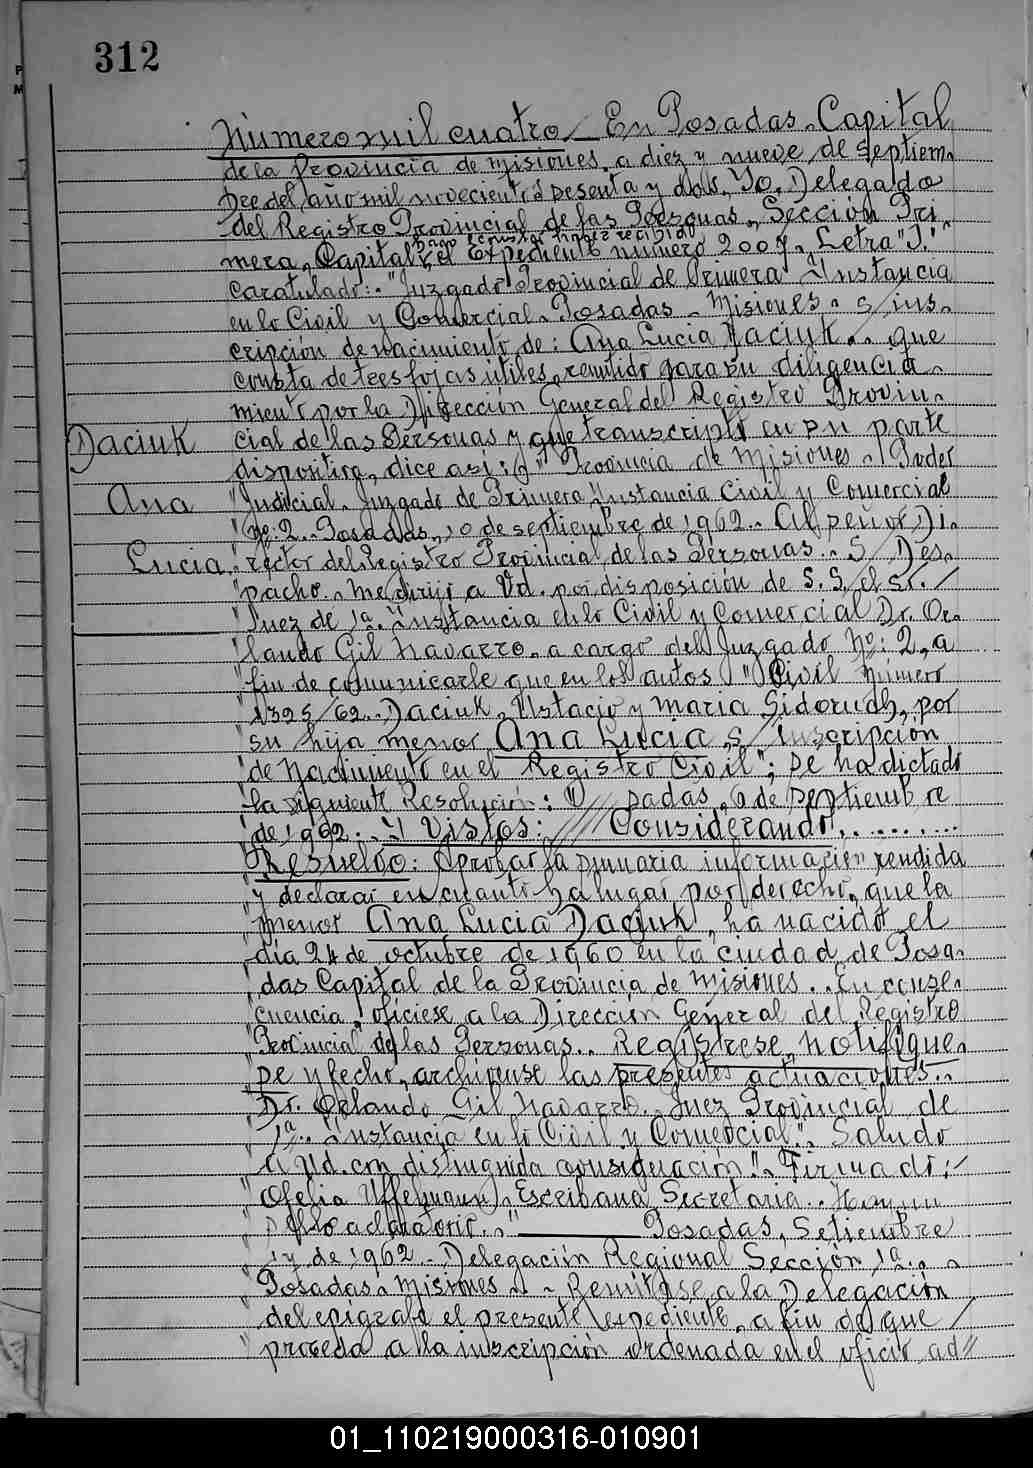 312
Número mil cuatro / En Posadas, Capital
de la Provincia de Misiones, a diez y nueve de Septiem-
bre del año mil novecientos sesenta y dos. Yo, Delegado
del Registro Provincial de las Personas, Sección Pri-
hago constar haber recibido
mera, Capital, el Expediente número 2007, Letra "J."
Caratulado: "Juzgado Provincial de Primera Instancia
en lo Civil y Comercial. Posadas - Misiones. s/ins-
cripción de nacimiento de: Ana Lucia Daciuk.. que
consta de tres fojas útiles, remitido para su diligencia-
miento por la Dirección General del Registro Provin-
Daciuk
cial de las Personas y que transcripto en su parte
dispositiva, dice así: "Provincia de Misiones. Poder
Ana
"Judicial. Juzgado de Primera Instancia Civil y Comercial
"Nº: 2. Posadas, 10 de septiembre de 1962.. Al señor Di-
Lucia
"rector del Registro Provincial de las Personas.. S/ Des-
"pacho.. Me dirijo a Vd. por disposición de S.S. el Sr. /
"Juez de 1ª. Instancia en lo Civil y Comercial Dr. Or-
"lando Gil Navarro, a cargo del Juzgado Nº: 2, a
"fin de comunicarle que en los autos "Civil número
"1325/62.. Daciuk, Ustacio y Maria Sidoruk, por
"su hija menor Ana Lucia, s/ Inscripción
"de Nacimiento en el Registro Civil"; se ha dictado
"la siguiente Resolución: "///sadas, 6 de septiembre
"de 1962.. Vistos: //// Considerando..........
"Resuelvo: Aprobar la sumaria información rendida
"y declarar en cuanto ha lugar por derecho, que la
"menor Ana Lucia Daciuk, ha nacido el
"día 24 de octubre de 1960 en la ciudad de Posa-
"das Capital de la Provincia de Misiones.. En conse-
"cuencia, ofíciese a la Dirección General del Registro
"Provincial de las Personas.. Regístrese, notifíque-
"se y fecho, archívense las presentes actuaciones..
"Dr. Orlando Gil Navarro. Juez Provincial de
"1ª. Instancia en lo Civil y Comercial". Saludo
"a Vd. con distinguida consideración". Firmado: /
"Ofelia Uffelmann, Escribana Secretaria.. Hay un
"sello aclaratorio.." Posadas, Setiembre
"17 de 1962 - Delegación Regional Sección 1ª.
"Posadas - Misiones. Remítase a la Delegación
"del epígrafe el presente expediente, a fin de que /
"proceda a la inscripción ordenada en el oficio ad//
01_110219000316-010901